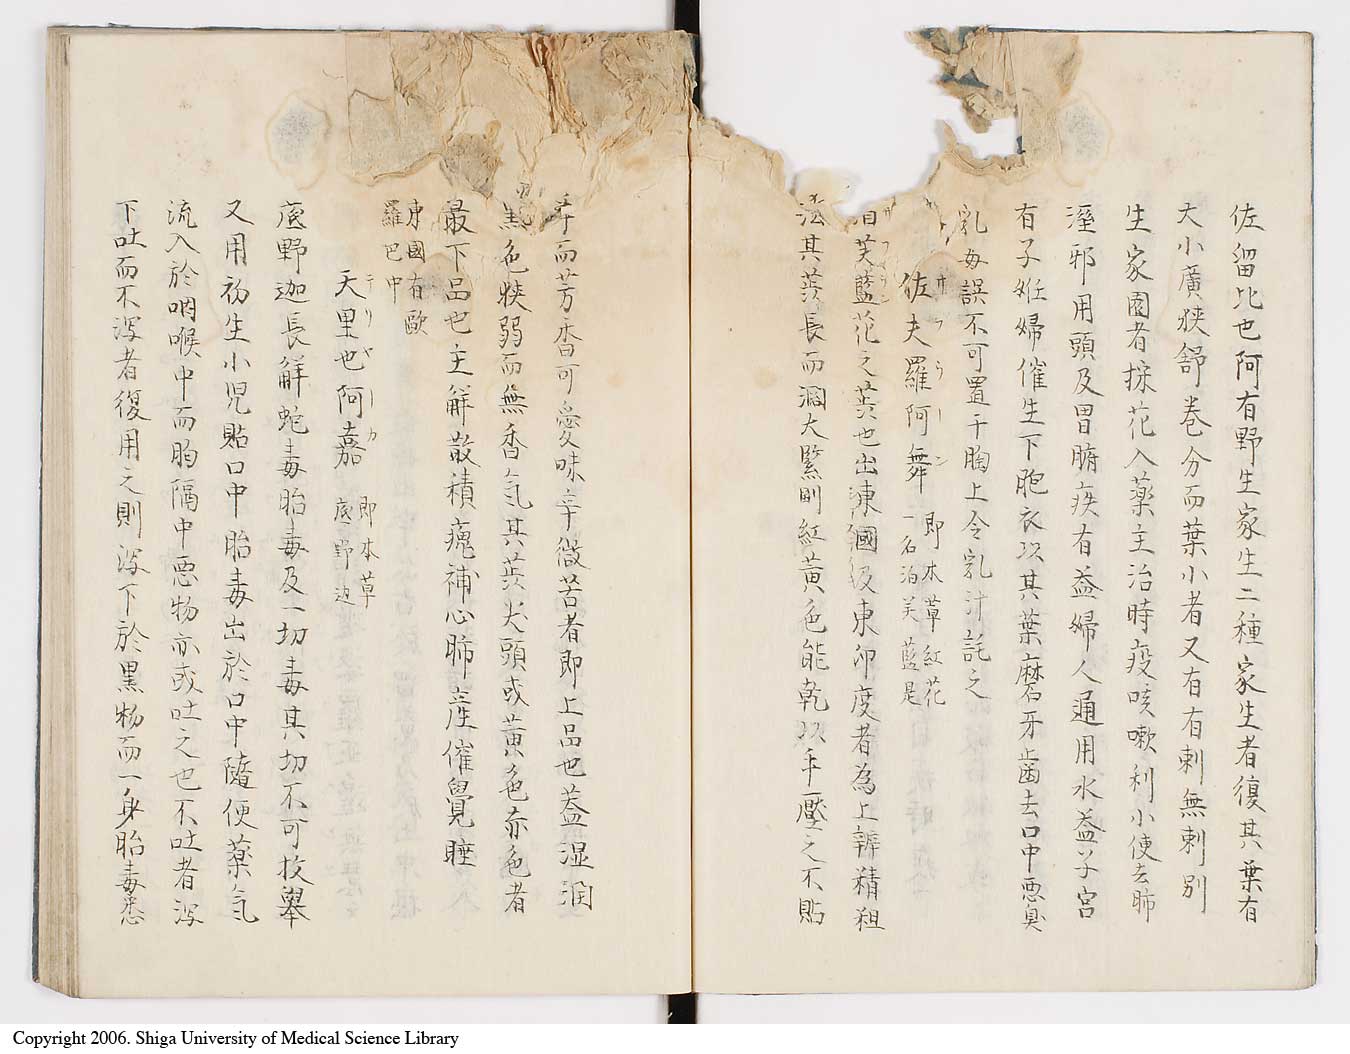 佐留比也阿有野生家生二種家生者復其葉有
大小廣狹舒卷分而葉小者又有有刺無刺別
生家園者採花入藥主治時疫咳嗽利小便去肺
溼邪用頭及胃腑疾有益婦人通用水益子宮
有子姙婦催生下胞衣以其葉磨牙齒去口中悪臭
乳毎誤不可置于胸上令乳汁託之
佐夫羅阿舞 即本草紅花
一名泊芙藍是
サフラーン
泊芙藍花之蕋也出東國及東印度者為上辨精粗
法其蕋長而濶大緊剛紅黃色能乾以手壓之不貼
手而芳香可愛味辛微苦者即上品也蓋湿润
黒色狹弱而無香気其蕋大頭或黄色亦色者
最下品也主解散積瘣補心肺産催覺睡
東國有歐
羅巴中
天里也阿嘉 即本草
底野迦
テリヤーカ
底野迦長解蛇毒胎毒及一切毒其切不可枚舉
又用初生小児貼口中胎毒出於口中隨便藥気
流入於咽喉中而胸隔中悪物亦或吐之也不吐者泻
下吐而不泻者復用之則泻下於黒物而一身胎毒悉
Copyright 2006. Shiga University of Medical Science Library